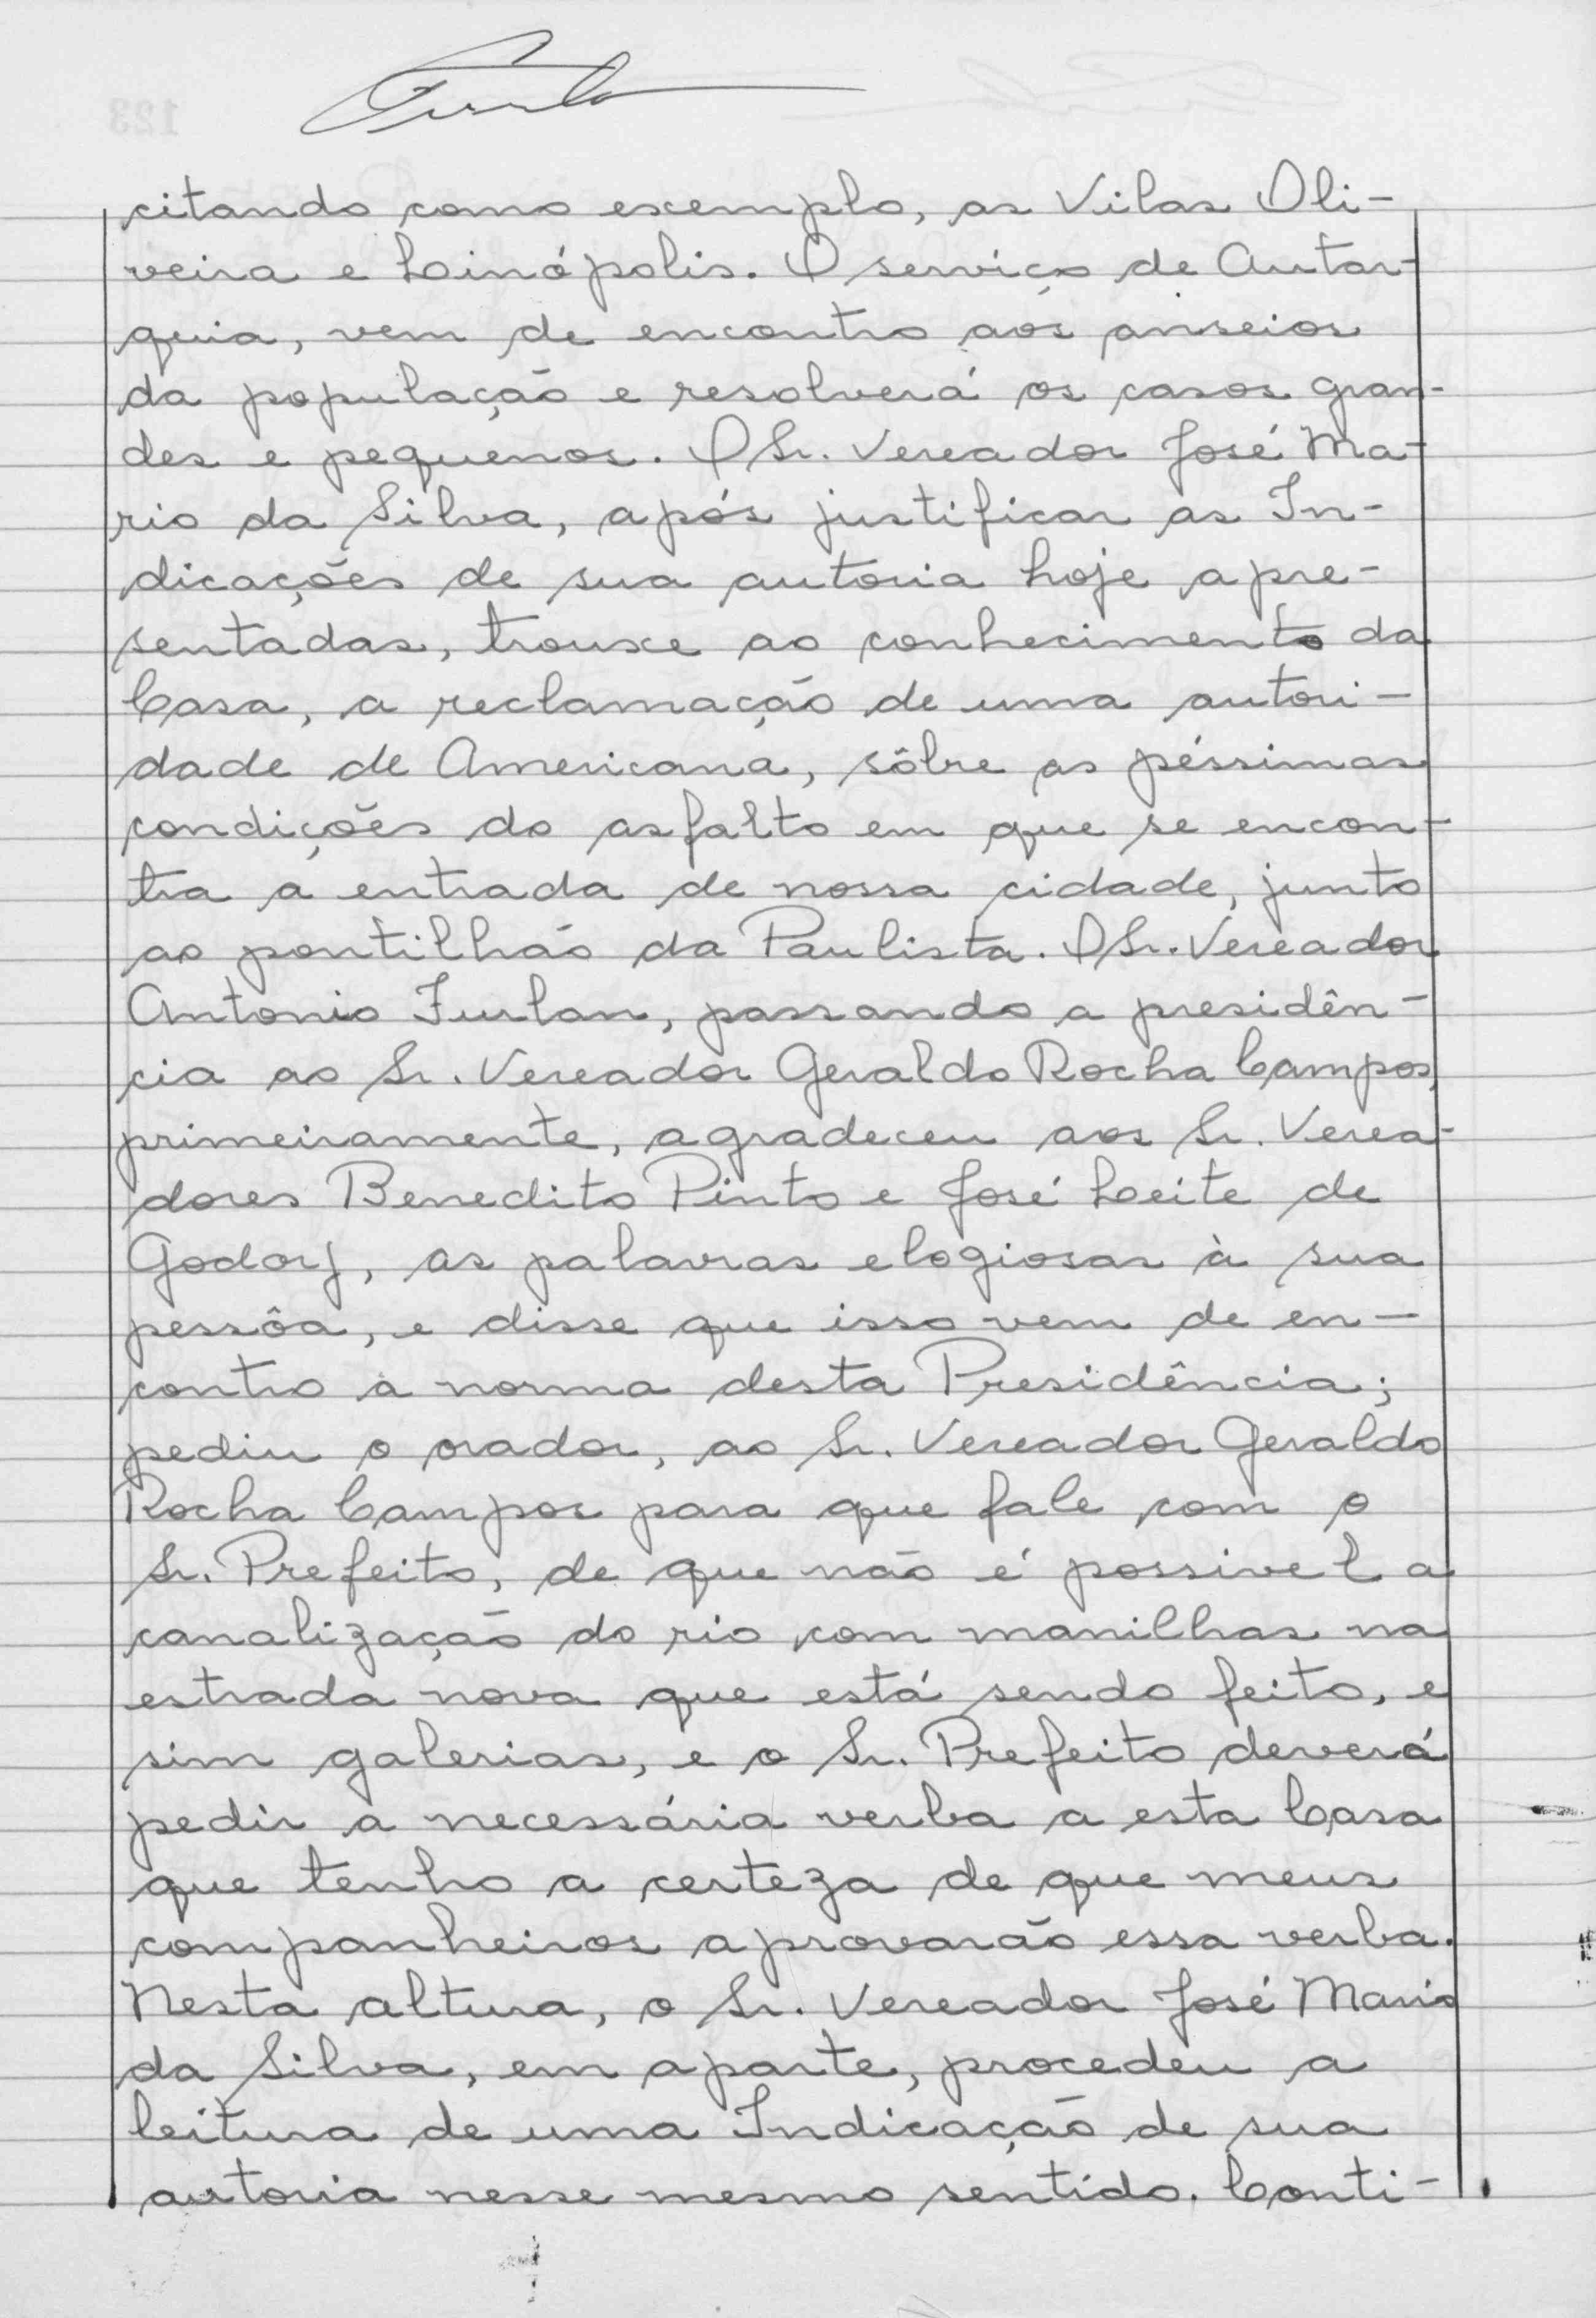 citando como exemplo, as Vilas Oli-
veira e Linópolis. O serviço de Autar-
quia, vem de encontro aos anseios
da população e resolverá os casos gran-
des e pequenos. O Sr. Vereador José Ma-
rio da Silva, após justificar as In-
dicações de sua autoria hoje apre-
sentadas, trouxe ao conhecimento da
Casa, a reclamação de uma autori-
dade de Americana, sôbre as péssimas
condições do asfalto em que se encon-
tra a entrada de nossa cidade, junto
ao pontilhão da Paulista. O Sr. Vereador
Antonio Furlan, passando a presidên-
cia ao Sr. Vereador Geraldo Rocha Campos,
primeiramente, agradeceu aos Sr. Verea-
dores Benedito Pinto e José Leite de
Godoy, as palavras elogiosas à sua
pessôa, e disse que isso vem de en-
contro a norma desta Presidência;
pediu o orador, ao Sr. Vereador Geraldo
Rocha Campos para que fale com o
Sr. Prefeito, de que não é possivel a
canalização do rio com manilhas na
estrada nova que está sendo feito, e
sim galerias, e o Sr. Prefeito deverá
pedir a necessária verba a esta Casa
que tenho a certeza de que meus
companheiros aprovarão essa verba.
Nesta altura, o Sr. Vereador José Mario
da Silva, em aparte, procedeu a
leitura de uma Indicação de sua
autoria nesse mesmo sentido. Conti-